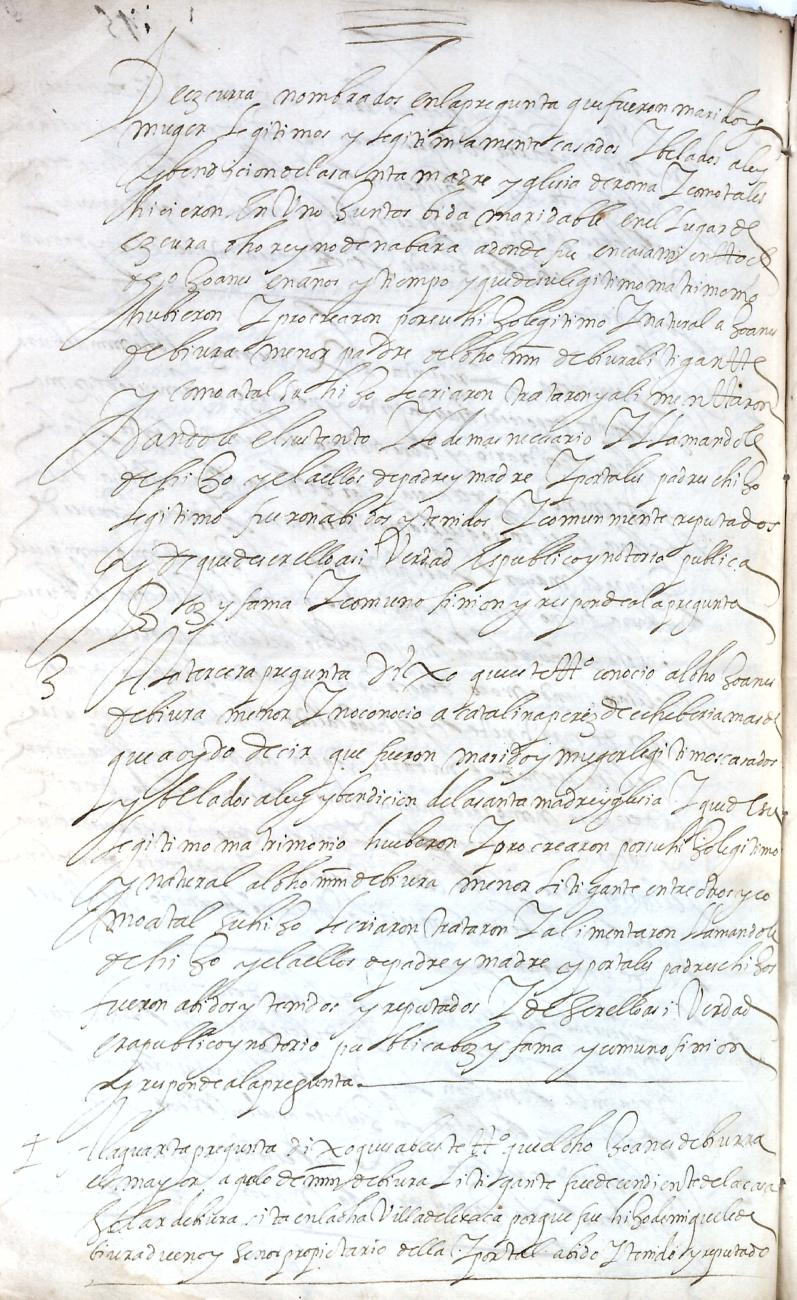 De ezcurra nombrados en la pregunta que fueron marido y
muger legitimos y legitimamente casados Y belados a ley
y bendicion de la santa madre yglesia de roma Y como tales
hicieron En Uno Juntos bida maridable en el lugar de
ezcura dho reyno de nabara a donde fue en casamiento el
dho Joanes en años y tiempo y que de su legitimo matrimonio
hubieron Y procrearon por su hiJo legitimo Y natural a Joanes
de biura menor padre del dho mmn de biura litigantte
y como a tal su hiJo le criaron trataron y alimenttaron
Dandole el sustento Y lo demas necesario Y llamandole
de hiJo y el a ellos de padre y madre Y por tales padres e hiJo
legitimo fueron abidos y tenidos Y comunmente reputados
y de que de ser ello asi Verdad Es publico y notorio publica
boz y fama Y comun osinion y responde a la pregunta
3 A la tercera pregunta DiXo que este ttº conocio al dho Joanes
de biura menor Y no conocio a catalina perez de echeberia mas de
que a oydo decir que fueron marido y muger legitimos casados
y belados a ley y bendicion de la santa madre yglesia Y que de su
legitimo matrimonio huberon Y procrearon por su hiJo legitimo
y natural al dho mmn de biura menor litigante entre otros y co
mo a tal su hiJo le criaron trataron Y alimentaron llamandole
de hiJo y el a ellos de padre y madre y por tales padres e hiJos
fueron abidos y tenidos y reputados Y de ser ello asi Verdad
era publico y notorio publica boz y fama y comun osinion
y responde a la pregunta
4 A la quarta pregunta diXo que sabe este ttº que el dho Joanes de biurra
el mayor aguelo de mmn de biura litigante fue decendiente de la casa
Solar de biura sita en la dha Villa de lesaca porque fue hiJo de miguel de
biura dueno y Senor propietario della Y por tal abido Y tenido y reputado